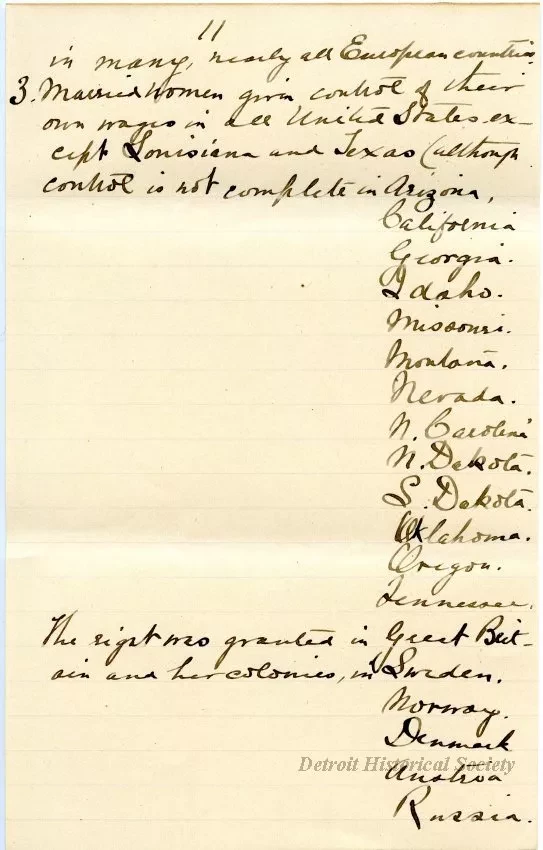 11
in many, nearly all European countries.
3. Married women given control of their
own wages in all United States ex-
cept Louisiana and Texas (although
control is not complete in Arizona,
California
Georgia.
Idaho.
Missouri.
Montana.
Nevada.
N. Carolina
N. Dakota.
S. Dakota.
Oklahoma.
Oregon.
Tennessee.
The right was granted in Great Brit-
ain and her colonies, in Sweden.
Norway.
Denmark
Detroit Historical Society
Austria
Russia.